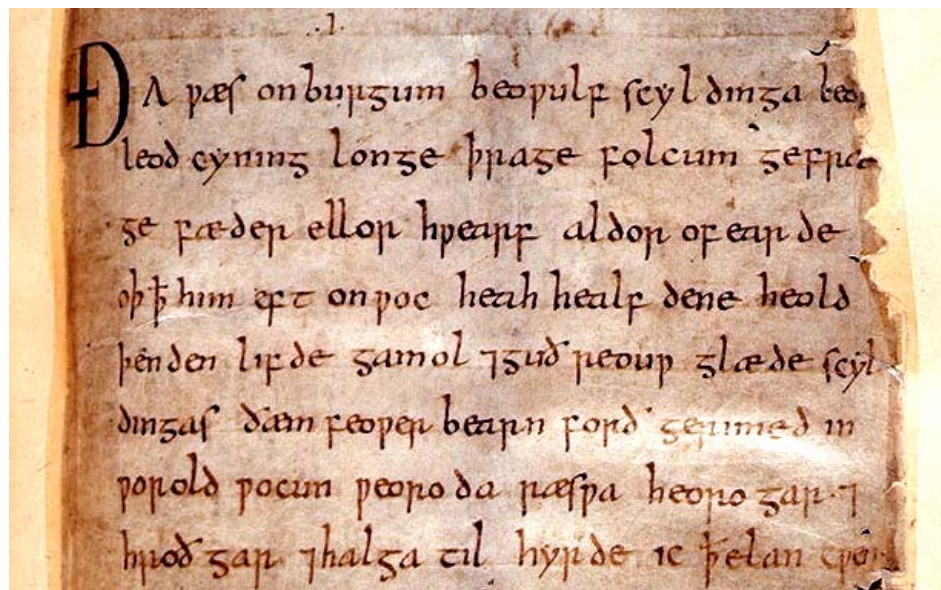 .I.
ÐA ƿæs onburgum beoƿulf scyldinga beo
leod cyning longe þrage folcum gefræ
ge fæder ellor hƿearf aldor ofearde
oþꝥ him eft onƿoc heah healfdene heold
þenden lifde gamol ⁊guð reouƿ glæde scyl
dingas ðæm feoƿer bearn forð gerimed in
ƿorold ƿocun ƿeoroda ræsƿa heorogar·⁊
hroðgar ⁊halga til hyrde ic ꝥelan cƿen